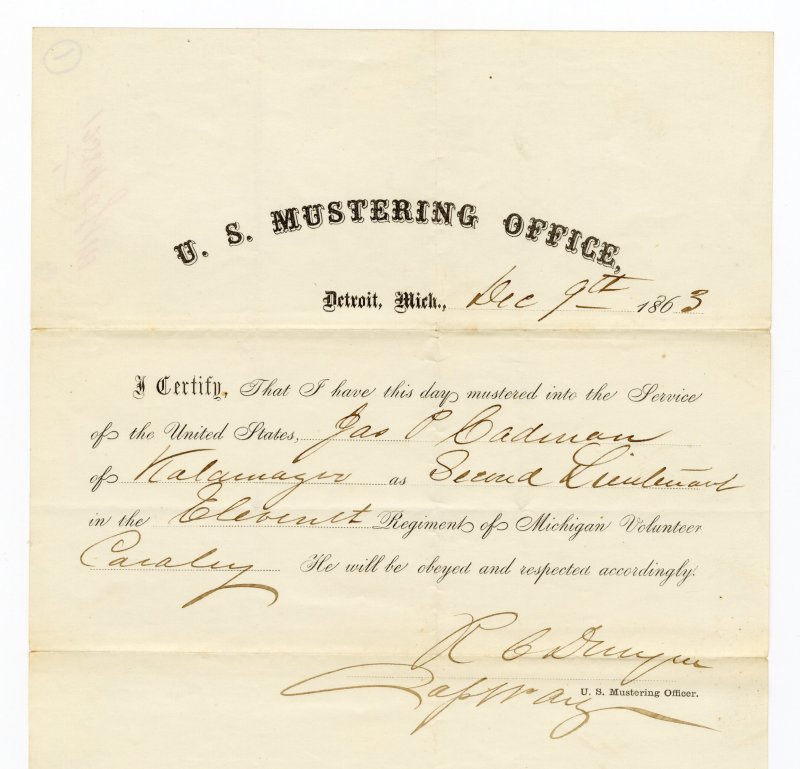 U. S. MUSTERING OFFICE,
Detroit, Mich., Dec 9th 1863
I Certify, That I have this day mustered into the Service
of the United States, Jas P Cadman
of Kalamazoo as Second Lieutenant
in the Eleventh Regiment of Michigan Volunteer
Cavalry He will be obeyed and respected accordingly.
R C
U. S. Mustering Officer.